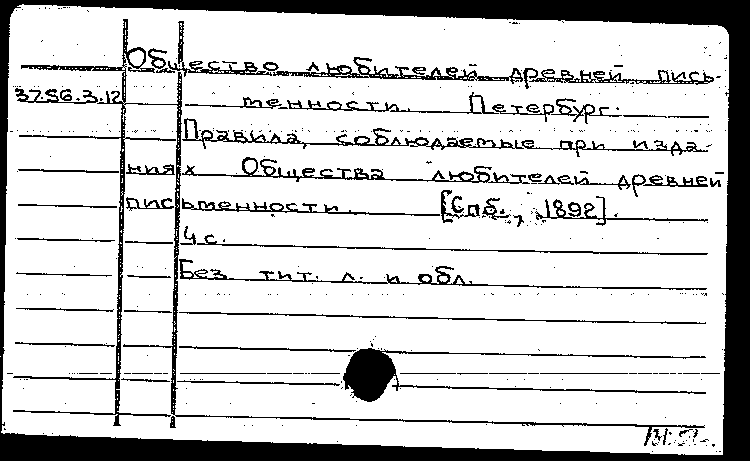 Общество любителей древней пись-
37.56.3.12 тенности. Петербург.
Правила, соблюдаемые при изда-
ниях Общества любителей древней
письменности. [Спб., 1892].
4 с.
Без тит. л. и обл.